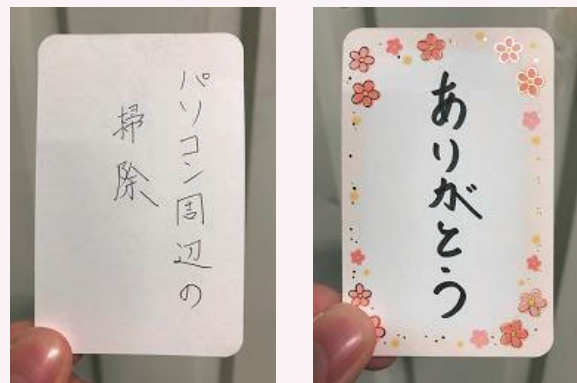 パソコン周辺の
掃除
ありがとう